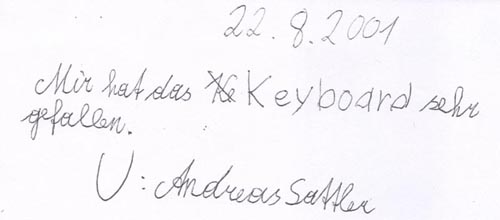 22.8.2001
Mir hat das Keyboard sehr
gefallen.
U: Andreas Sattler